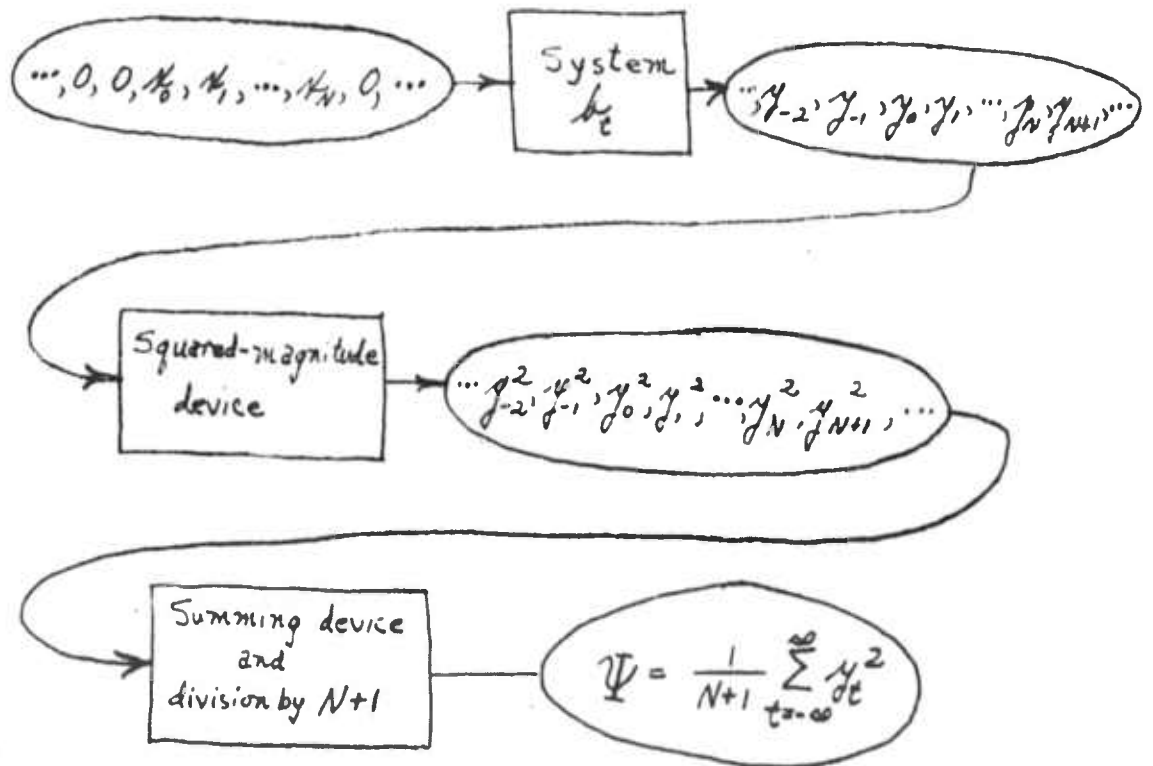 ..., 0, 0, x₀, x₁, ..., x_N, 0, ...
System
b_t
..., y₋₂, y₋₁, y₀, y₁, ..., y_N, y_{N+1}, ...
Squared-magnitude
device
... y₋₂², y₋₁², y₀², y₁², ..., y_N², y_{N+1}², ...
Summing device
and
division by N+1
Ψ = 1/(N+1) ∑_{t=-∞}^{∞} y_t²